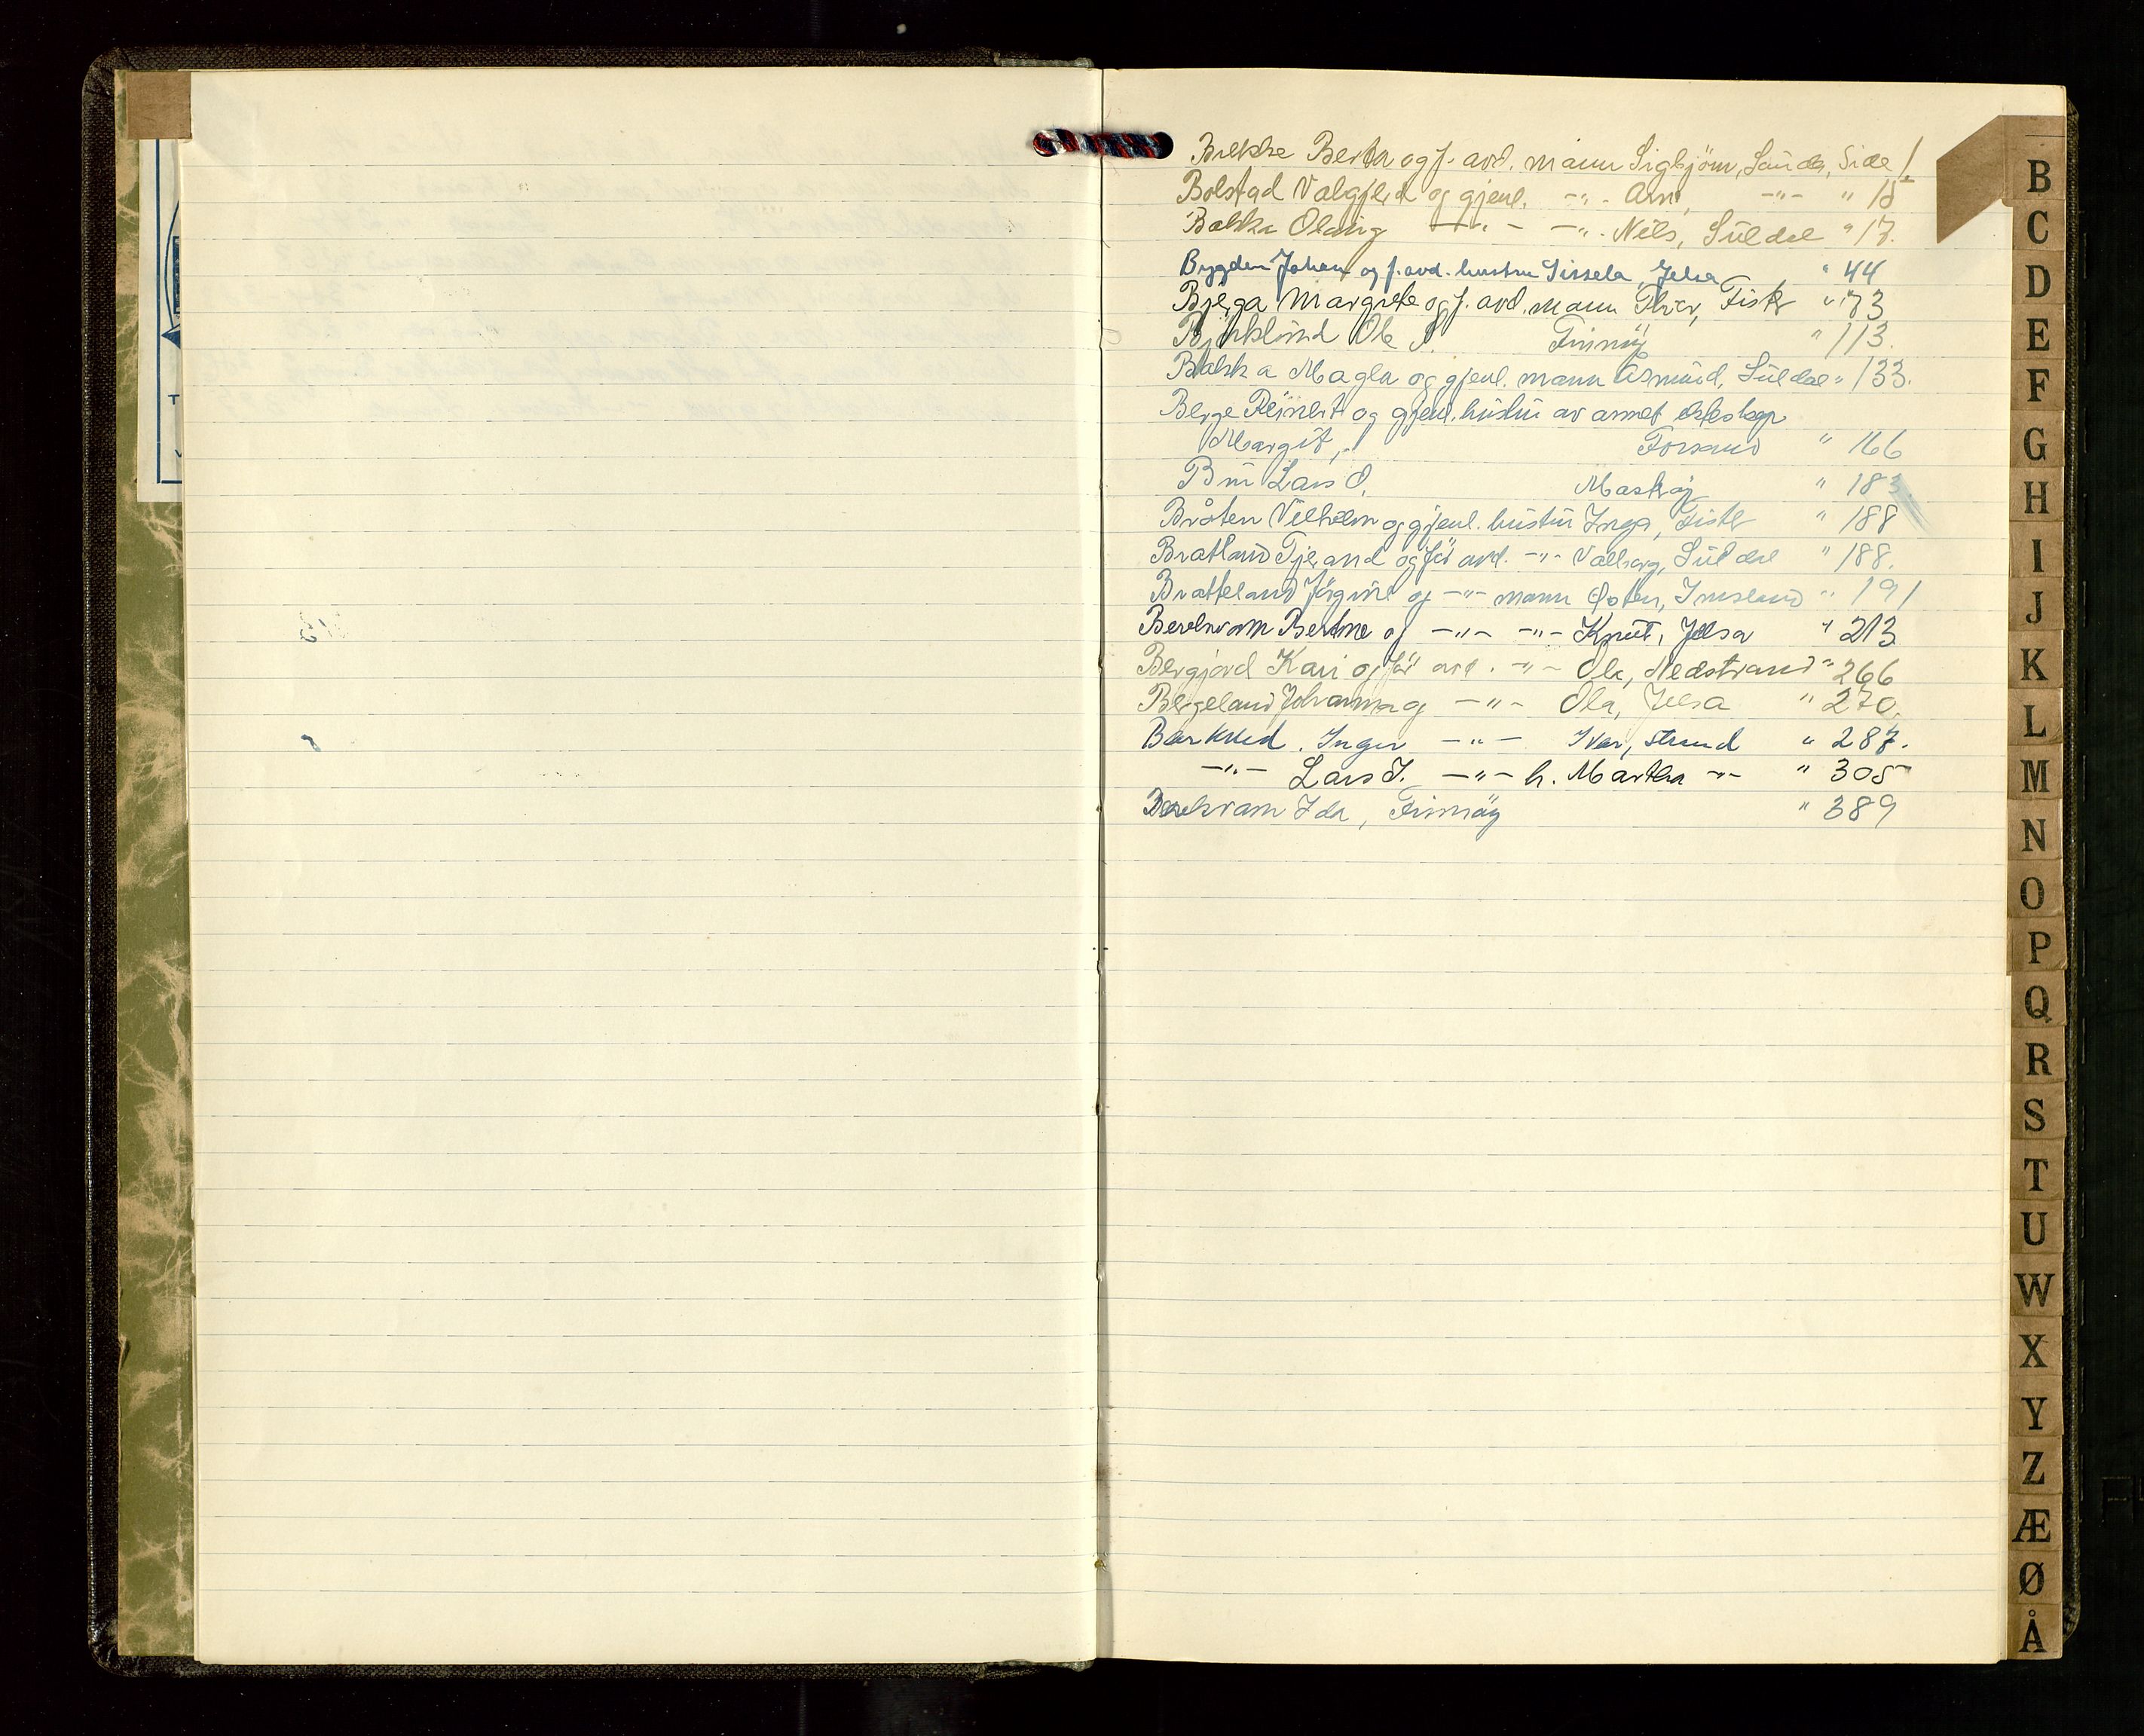 Brekke Berta og f. avd. mann Sigbjörn, Sauda, Side 1.
Bolstad Valgjerd og gjenl. -"- Arne, -"- " 15
Bakka Olaug -"- -"- Nils, Suldal " 17.
Bygden Johan og f. avd. hustru Sissela, Jelsa " 44
Bjerga Margrete og f. avd. mann Thor, Fisk " 73
Björklund Ole J. Finnöy " 113.
Bakka Magla og gjenl. mann Asmund, Suldal " 133.
Berge Reinert og gjenl. hustru av annet ekteskap
Margit, Forsand " 166
Bru Lars O. Mosteröy " 183.
Bråten Vilhelm og gjenl. hustru Inga, Fister " 188
Bratland Tjerand og för avd. -"- Valborg, Suldal " 188.
Bratteland Jörgine og -"- mann Osten, Imsland " 191
Berekvam Bertine og -"- -"- Knut, Jelsa " 213
Bergjord Kari og för avd. -"- Ola, Nedstrand " 266
Bergeland Johanna og -"- Ola, Jelsa " 270.
Barkved. Inger -"- Ivar, Strand " 287.
-"- Lars I. -"- h. Martha -"- " 305
Berekvam Ida, Finnöy " 389
B
C
D
E
F
G
H
I
J
K
L
M
N
O
P
Q
R
S
T
U
W
X
Y
Z
Æ
Ø
Å